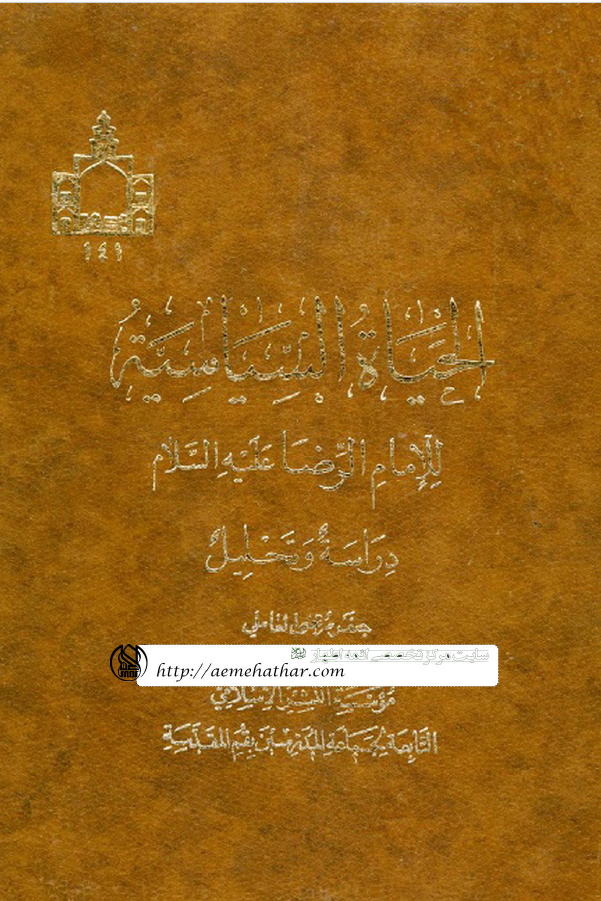 ١٤١
الحَيَاةُ السِّيَاسِيَّةُ
لِلإِمَامِ الرِّضَا عَلَيْهِ السَّلَام
دِرَاسَةٌ وَتَحْلِيلٌ
جعفر مرتضى العاملي
سایت مرکز تخصصی ائمه اطهار
http://aemehathar.com
مؤسسة النشر الإسلامي
التابعة لجماعة المدرسين بقم المقدسة